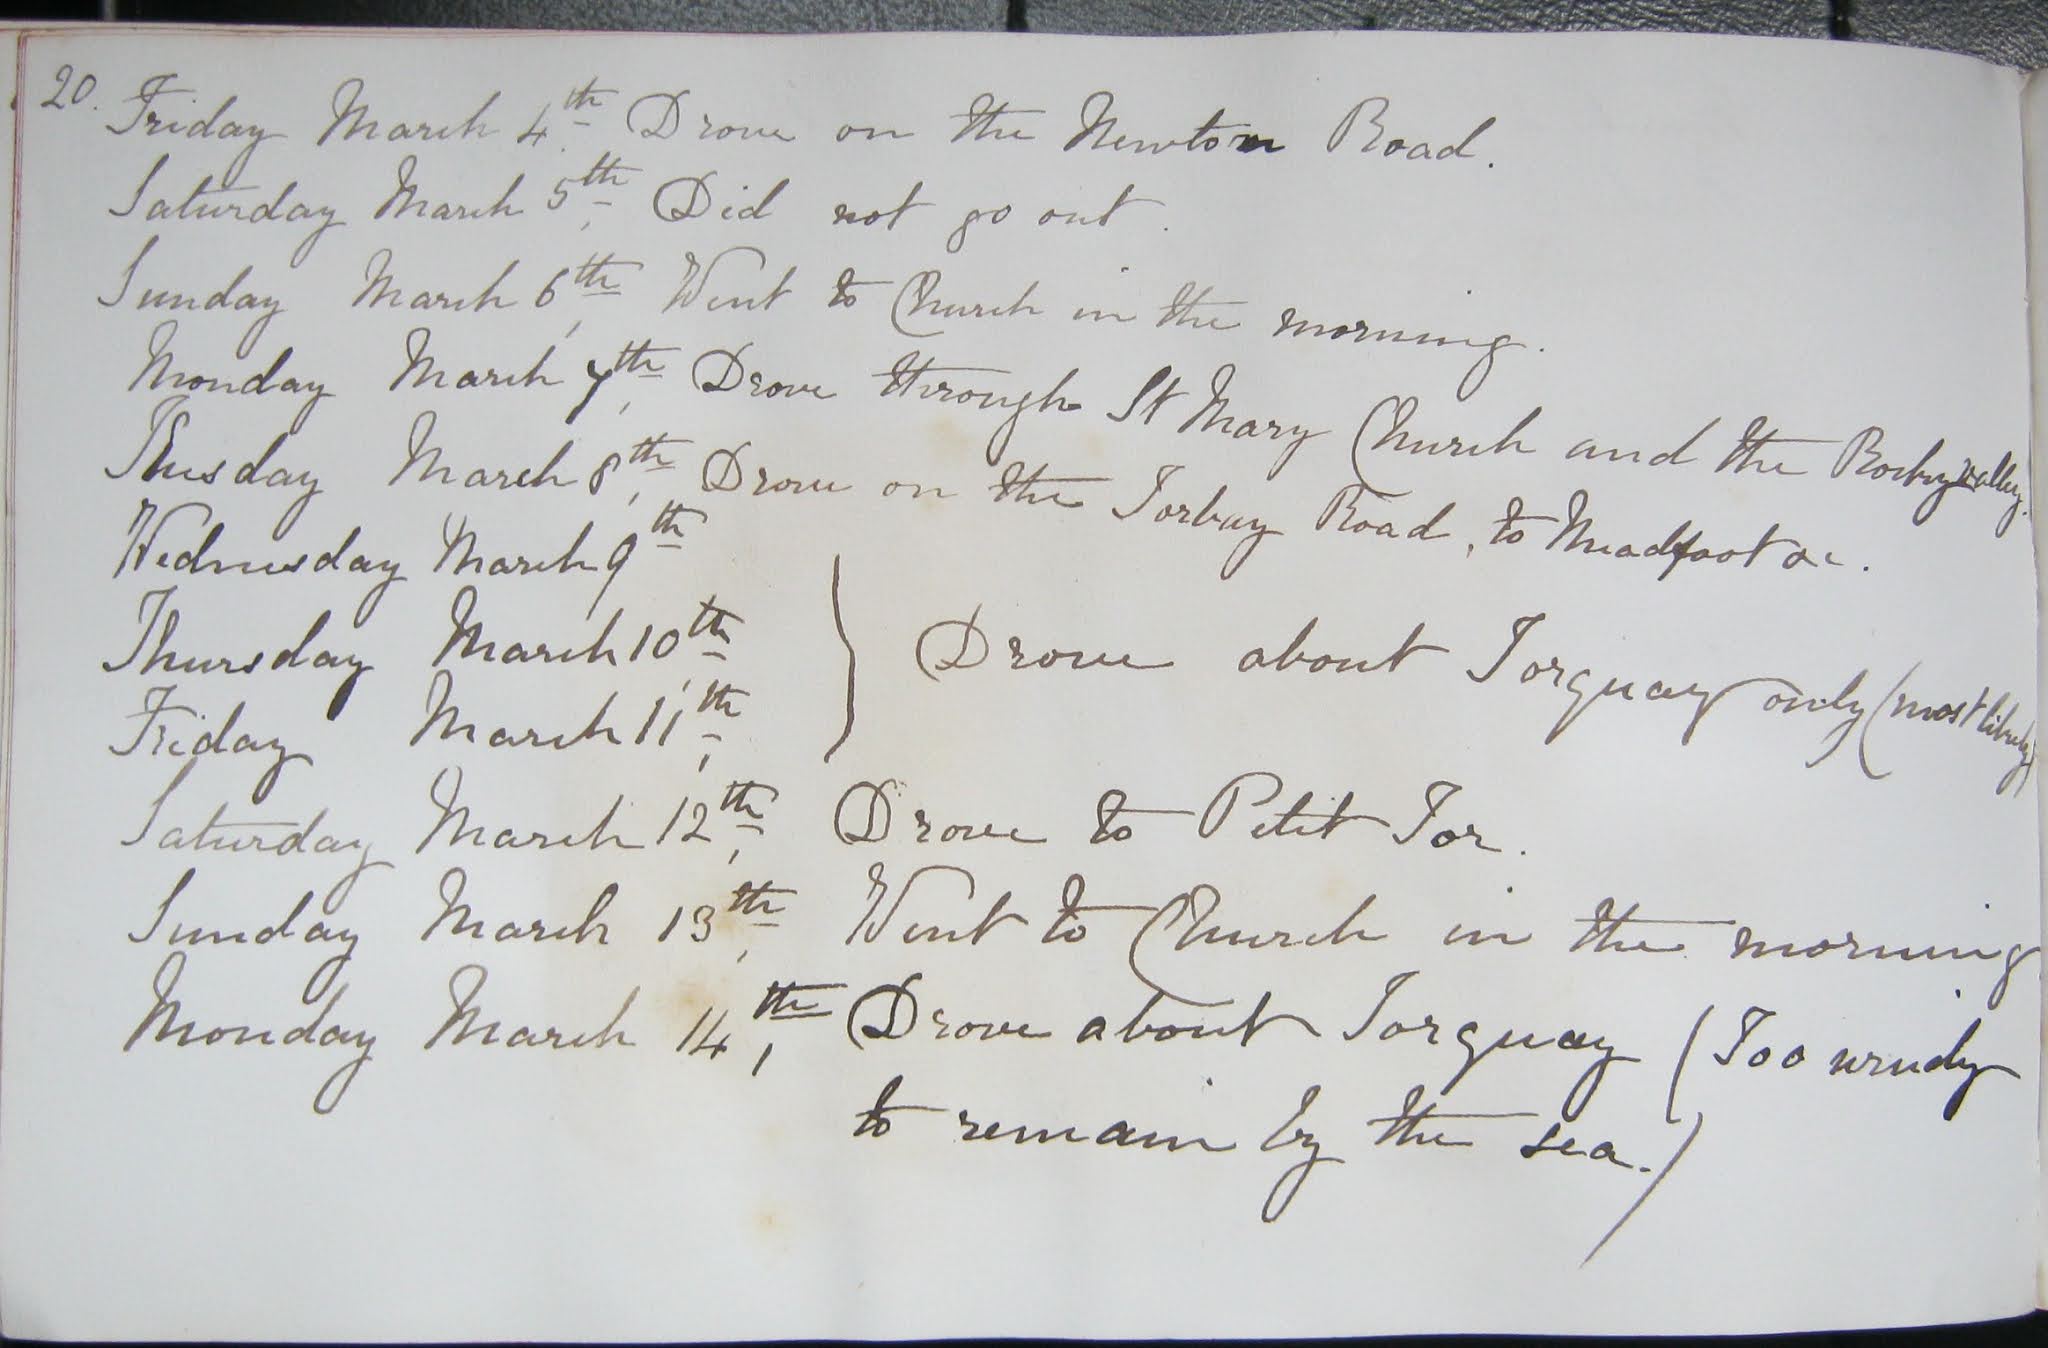 20.
Friday March 4th Drove on the Newton Road.
Saturday March 5th, Did not go out.
Sunday March 6th, Went to Church in the morning.
Monday March 7th, Drove through St Mary Church and the Rocky valley.
Tuesday March 8th, Drove on the Torbay Road, to Meadfoot &c.
Wednesday March 9th
Thursday March 10th, } Drove about Torquay only (most likely)
Friday March 11th,
Saturday March 12th, Drove to Petit Tor.
Sunday March 13th, Went to Church in the morning
Monday March 14th, Drove about Torquay (Too windy
to remain by the sea.)